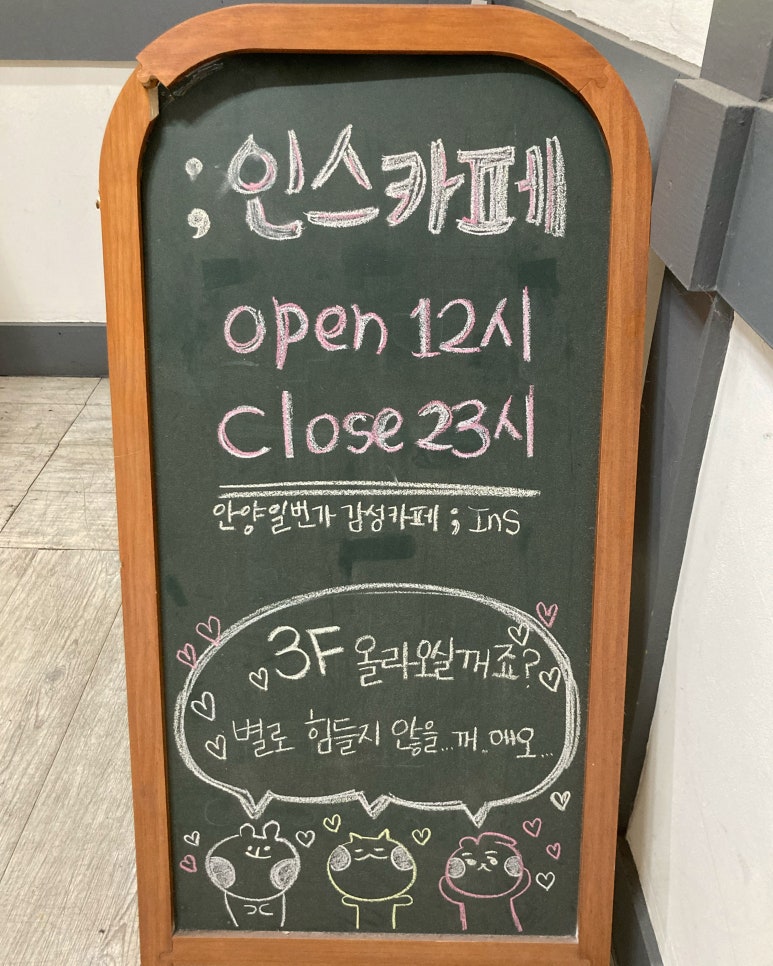 ;인스카페
open 12시
close 23시
안양일번가 감성카페 ; Ins
3F 올라오실꺼죠?
별로 힘들지 않을...꺼..애오...